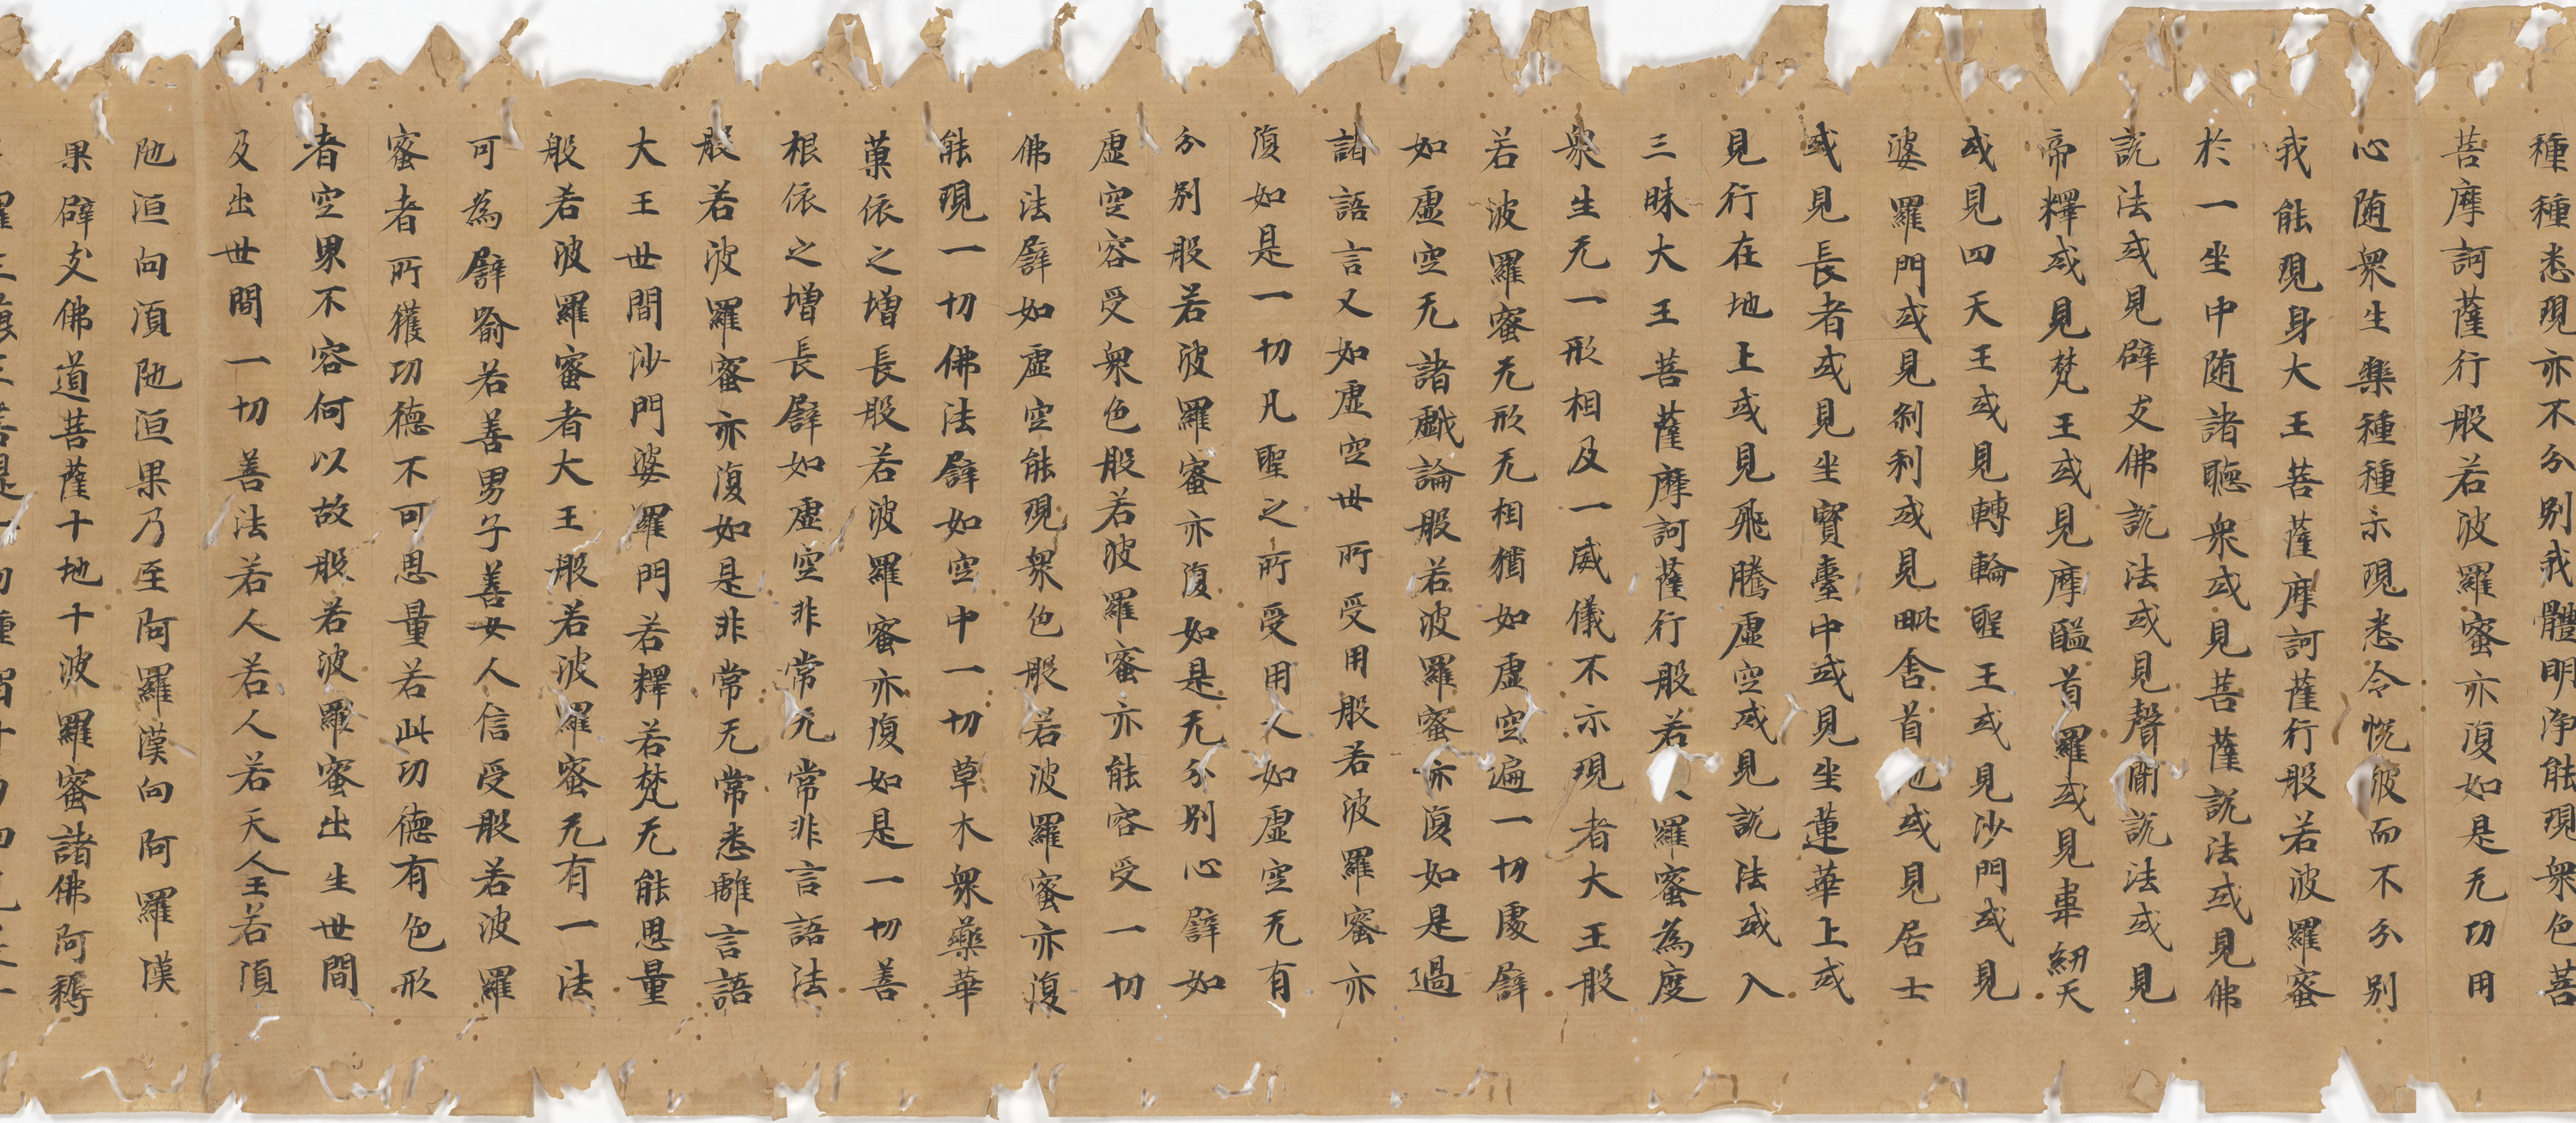 種種悉現亦不分別我體明淨能現衆色菩
菩摩訶薩行般若波羅蜜亦復如是无功用
心随衆生樂種種示現悉令悅彼而不分別
我能現身大王菩薩摩訶薩行般若波羅蜜
於一坐中随諸聽衆或見菩薩說法或見佛
說法或見辟支佛說法或見聲聞說法或見
帝釋或見梵王或見摩醯首羅或見韋紐天
或見四天王或見轉輪聖王或見沙門或見
婆羅門或見刹利或見毗舍首他或見居士
或見長者或見坐寶臺中或見坐蓮華上或
見行在地上或見飛騰虛空或見說法或入
三昧大王菩薩摩訶薩行般若羅蜜為度
衆生无一形相及一威儀不示現者大王般
若波羅蜜无形无相猶如虛空遍一切處譬
如虛空无諸戲論般若波羅蜜亦復如是過
諸語言又如虛空世所受用般若波羅蜜亦
復如是一切凡聖之所受用又如虛空无有
分別般若波羅蜜亦復如是无分別心譬如
虛空容受衆色般若波羅蜜亦能容受一切
佛法譬如虛空能現衆色般若波羅蜜亦復
能現一切佛法譬如空中一切草木衆藥華
菓依之增長般若波羅蜜亦復如是一切善
根依之增長譬如虛空非常无常非言語法
般若波羅蜜亦復如是非常无常悉離言語
大王世間沙門婆羅門若釋若梵无能思量
般若波羅蜜者大王般若波羅蜜无有一法
可為譬喻若善男子善女人信受般若波羅
蜜者所獲功德不可思量若此功德有色形
者空界不容何以故般若波羅蜜出生世間
及出世間一切善法若人若人若天人王若湏
陁洹向湏陁洹果乃至阿羅漢向阿羅漢
果辟支佛道菩薩十地十波羅蜜諸佛阿耨